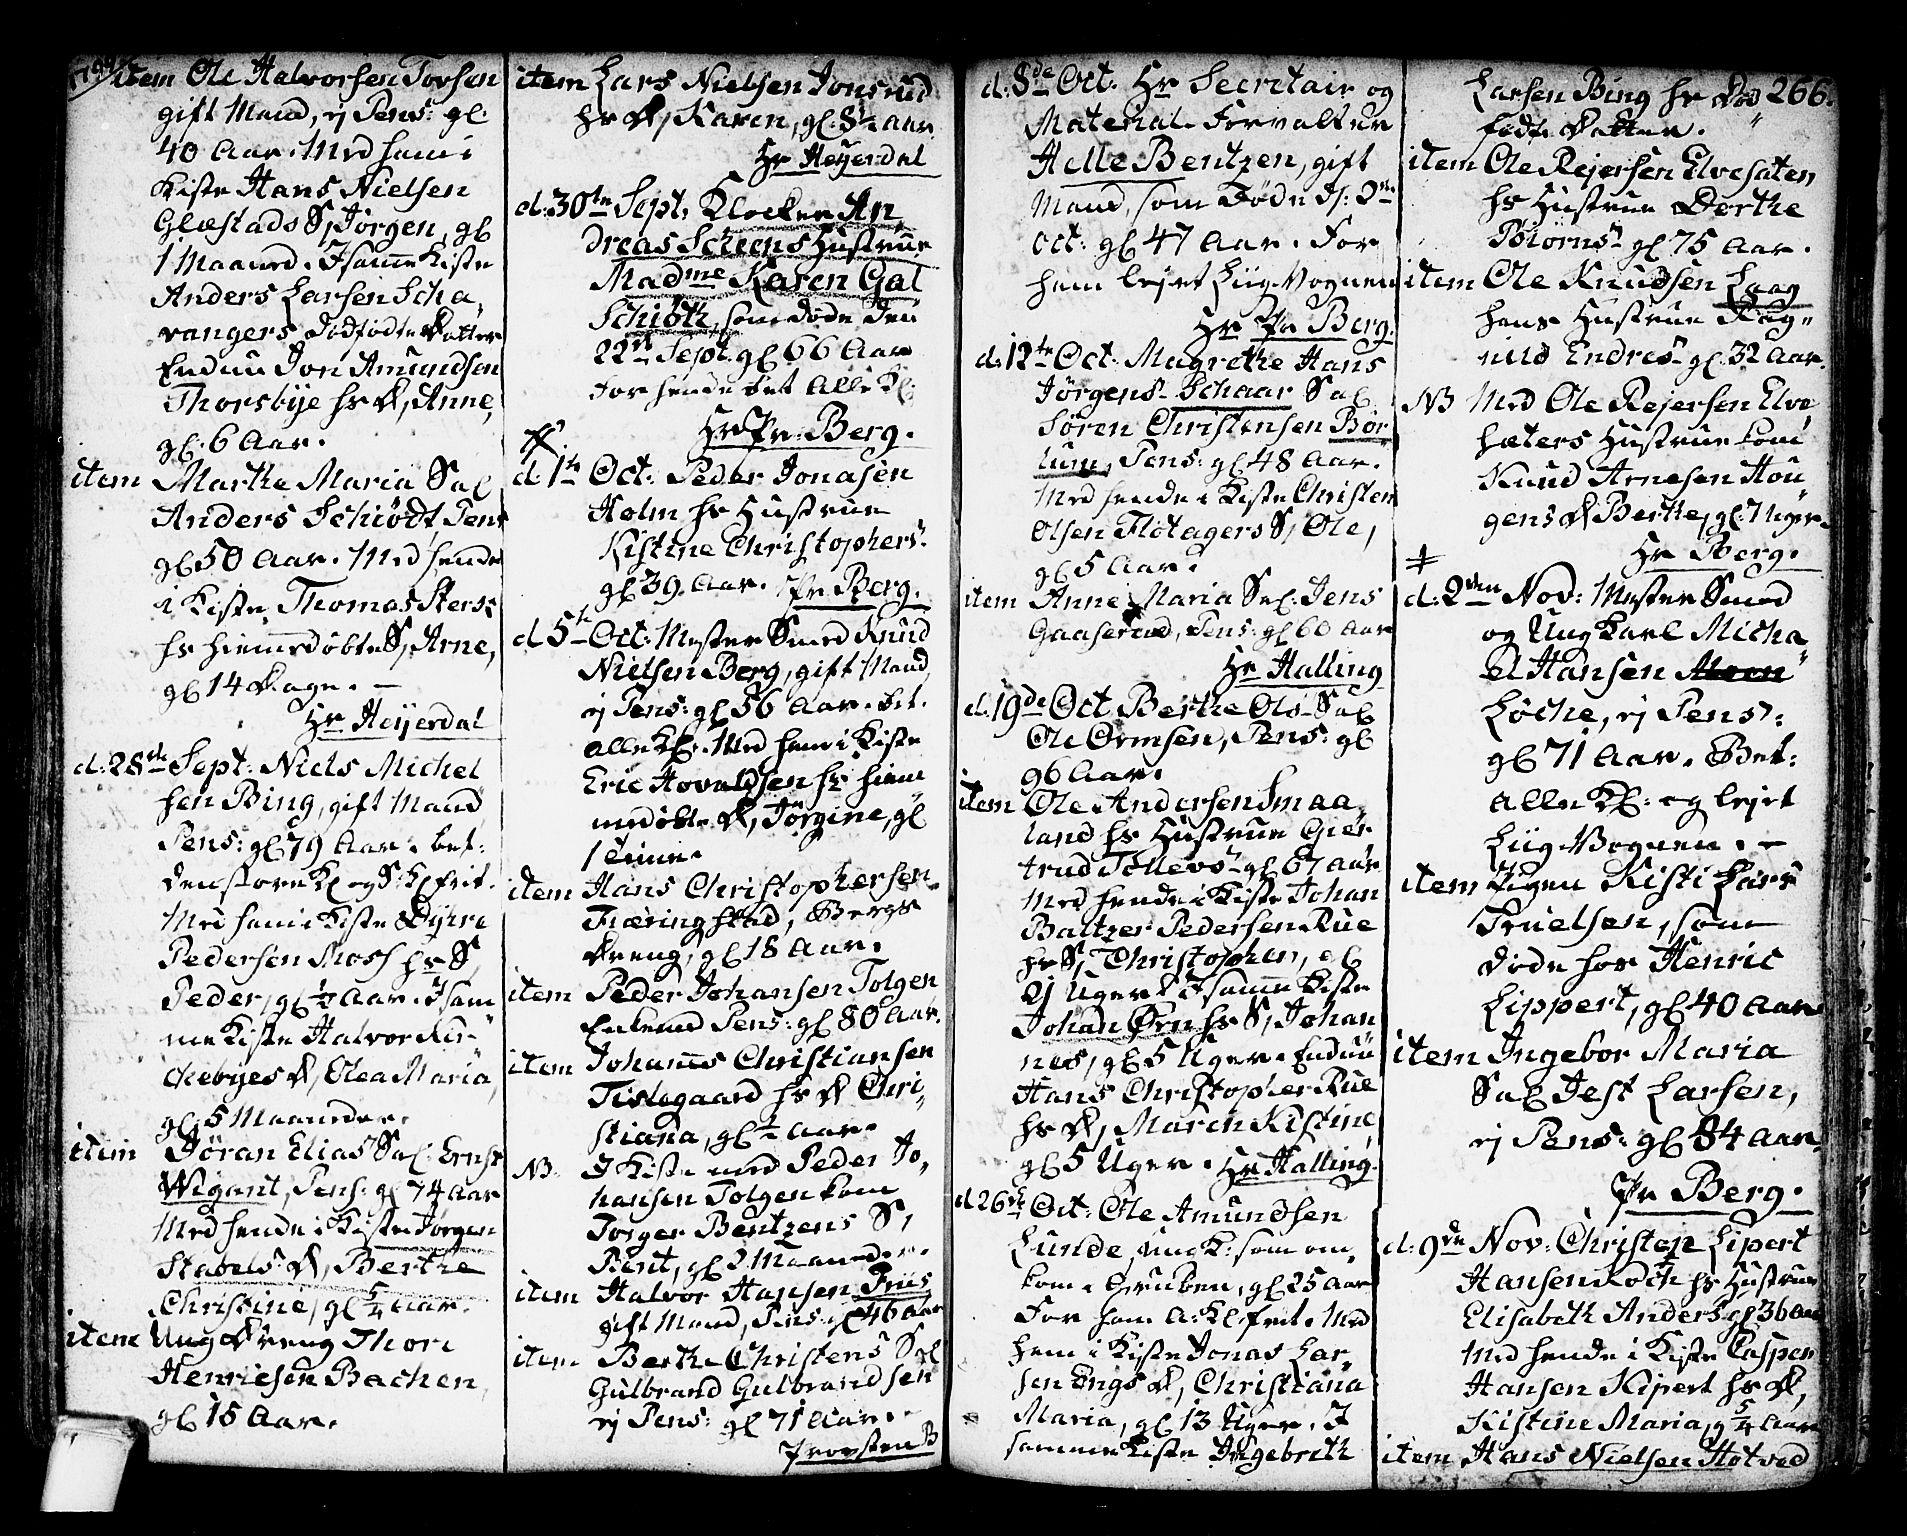 1799
item Ole Halvorsen Torsen
gift Mand, ej Pens: gl:
40 Aar. Med ham i
Kiste Hans Nielsen
Glæstads S, Jørgen, gl
1 Maaned. I samme Kiste
Anders Larsen Scha,
vangers dødfødte Datter
Enduu Jon Amundsen
Thorsbye hs D, Anne,
gl: 6 Aar.
item Marthe Maria Sal
Anders Schiødt, Pens
gl 50 Aar. Med hende
i Kiste Thomas Sters:
hs hiemmedøbte S, Arne,
gl 14 Dage. —
Hr Heyerdal
d: 28de Sept: Niels Michel
sen Bing, gift Mand
Pens: gl 79 Aar. bet:
den store Kl: og S: Kl frit.
Med ham i Kiste Dyhre
Pedersen Moss hs S,
Peder, gl 1/2 Aar. I sam
me Kiste Halvor Kir-
chebyes D, Olea Maria,
gl 5 Maaneder.
item Jøran Elias Sal: Ernst
Wigant, Pens: gl 74 Aar
Med hende i Kiste Jørgen
Stabels D, Berthe
Christine, gl 5/4 Aar.
item Ung Dreng Thore
Henriesen Bachen,
gl 15 Aar.
item Lars Nielsen Jonsrud
hs D, Karen, gl: 8 1/2 Aar
Hr Heyerdal
d: 30te Sept: Klocker An
dreas Scheens Hustrue
Madme Karen Gal
Schiøth, som døde den
22de Sept. gl 66 Aar
For hende bet Alle Kl:
Hr Pr: Berg.
d: 1te Oct: Peder Jonasen
Holm hs Hustrue
Kistine Christophers:
gl 39. Aar. Pr Berg.
d 5te Oct: Mester Smed Knud
Nielsen Berg, gift Mand
ej Pens: gl 56 Aar. bet.
alle Kl:. Med ham i Kiste
Eric Hovaldsen hs hiem
medøbte D, Jørgine, gl
1 Time.
item Hans Christophersen
Fiæringstad, Bergs
Dreng, gl 18 Aar.
item Peder Johansen Tolgen
Enkemd Pens: gl 80 Aar.
item Johannes Christiansen
Tislegaard hs D Chri,,
stiana, gl 1/2 Aar.
NB. I Kiste med Peder Jo,
hansen Tolgen kom
Torger Bentzens S,
Bent, gl 2 Maaneder.
item Halvor Hansen Friis
gift Mand, Pens: gl 46 Aar
item Berthe Christens Sal
Gulbrand Gulbrandsen
ej Pens: gl 71 Aar.
Provsten B
d: 8de Oct: Hr Secretair og
Material-Forvalter
Helle Bentzen, gift
Mand, som døde d: 2den
Oct: gl 47 Aar. For
ham lejet Liig-Vognen
Hr Pr Berg.
d: 12te Oct: Magrethe Hans
Jørgens- Schaar Sal
Søren Christensen Bør
lum, Pens: gl 48 Aar.
Med hende i Kiste Christen
Olsen Flotagers S, Ole,
gl 5 Aar.
item Anne Maria Sal: Jens
Gaaserud, Pens: gl 60 Aar
Hr Halling
d: 19de Oct Berthe Ols- Sal
Ole Ormsen, Pens: gl
96 Aar.
item Ole Andersen Smaa
land hs Hustrue Giør
trud Tollevs- gl 67 Aar
Med hende i Kiste Johan
Baltzer Pedersen Rue
hs S, Christopher, gl
21 Uger. I samme Kiste
Johan Ørn hs S, Johan
nes, gl 5 Uger. Enduu
Hans Christopher Rue
hs D, Maren Kistine
gl 5 Uger. Hr Halling.
d 26de Oct: Ole Amundsen
Lunde, Ung K: som om,
kom i Gruben, gl 25 Aar
For ham A: Kl frit. Med
ham i Kiste Jonas Lar
sen Engs D, Christiana
Maria, gl 13 Uger. I
samme Kiste Ingebreth
266.
Larsen Bing hs død
fødte Datter.
item Ole Rejersen Elvesæter
hs Hustrue Dorthe
Biørns- gl 75 Aar.
item Ole Knudsen Laag
hans Hustrue Rag,,
nild Endres- gl: 32 Aar.
NB Med Ole Rejersen Elve
sæters Hustrue kom
Knud Arnesen Hou
gens D Berthe, gl: 7 Uger.
Hr Berg.
d: 2den Nov: Mester Smed
og Ung Karl Micha
el Hansen
Loche, ej Pens:
gl 71 Aar. Bet:
alle Kl: og lejet
Liig-Vognen. —
item Pigen Kisti Lars
Truelsen, som
døde hos Henric
Lippert, gl 40 Aar
item Ingebor Maria
Sal Jest Larsen,
ej Pens: gl 84 Aar.
Pr Berg.
d: 9de Nov: Christen Lipert
Hansen Koch hs Hustrue
Elisabeth Anders gl 36 Aar
Med hende i Kiste Casper
Hansen Kipert hs D,
Kistine Maria, gl 5/4 Aar
item Hans Nielsen Hotved